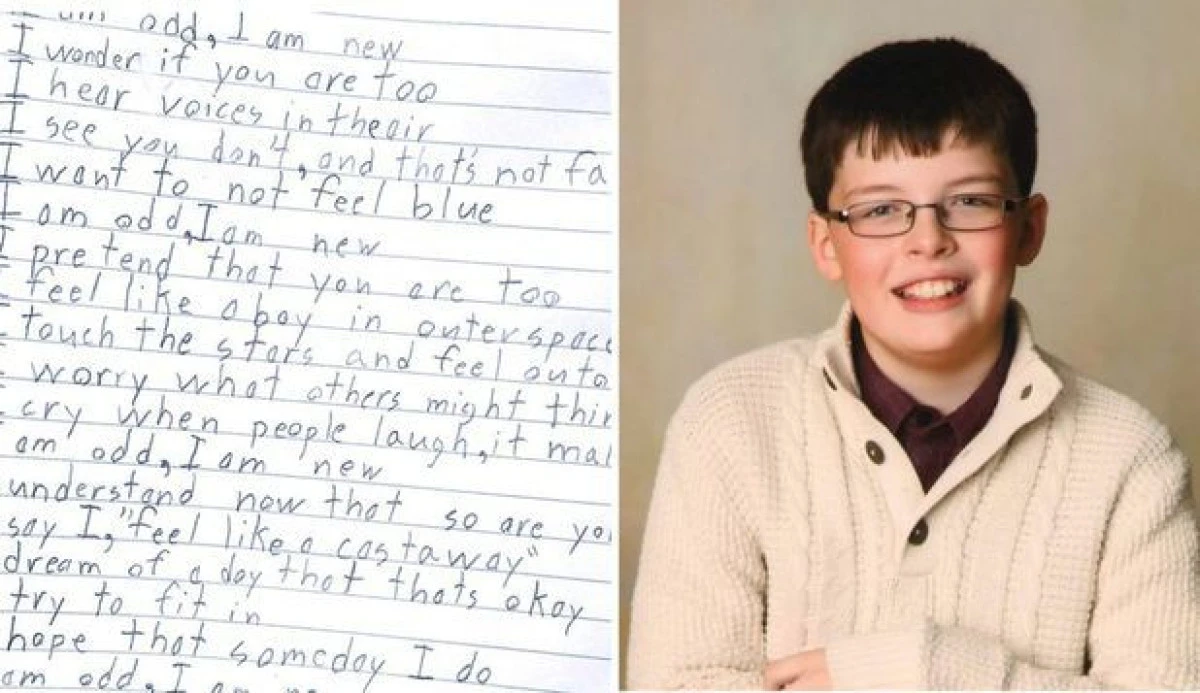 odd, I am new
I wonder if you are too
I hear voices in theair
I see you don't, and that's not fa
I want to not feel blue
I am odd, I am new
I pretend that you are too
feel like aboy in outerspace
touch the stars and feel outo
worry what others might thin
cry when people laugh, it mal
am odd, I am new
understand now that so are you
say I, "feel like a castaway"
dream of a day that thats okay
try to fit in
hope that someday I do
am odd, I am